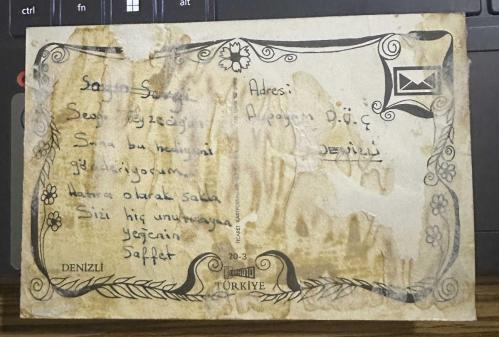 ctrl
fn
alt
Sayın Sevgi
Sevgi Teyzeciğim
Sana bu hediyemi
gönderiyorum.
hatıra olarak sakla
Sizi hiç unutmayan
yeğenin
Saffet
Adresi
Acıpayam D.Ü.Ç
DENİZLİ
DENİZLİ
20-3
TÜRKİYE